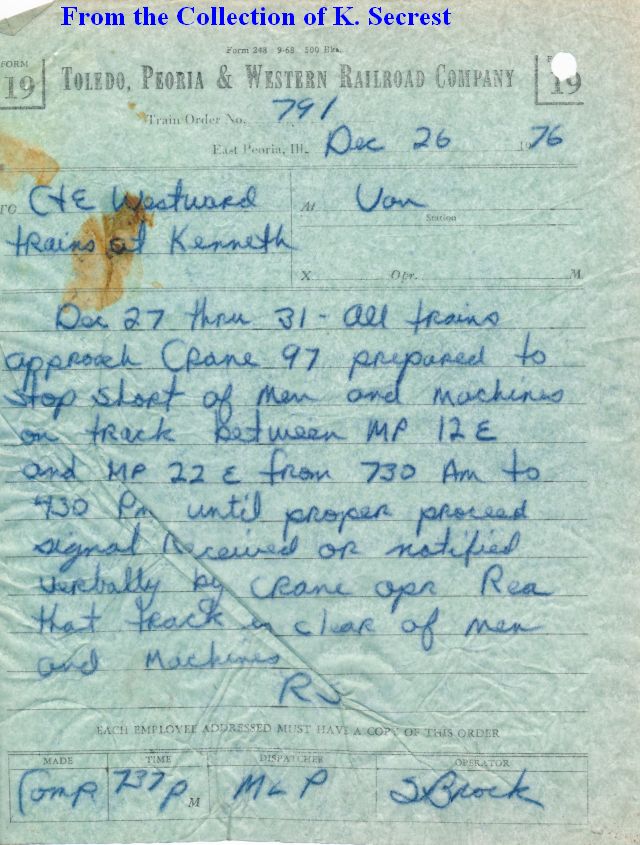 From the Collection of K. Secrest
Form 248 9-68 500 Bks.
FORM 19
TOLEDO, PEORIA & WESTERN RAILROAD COMPANY
19
Train Order No. 791
East Peoria, Ill. Dec 26 1976
TO C+E Westward
trains at Kenneth
At Von
Station
X Opr. M
Dec 27 thru 31 - All trains
approach Crane 97 prepared to
stop short of men and machines
on track between MP 12 E
and MP 22 E from 730 Am to
430 Pm until proper proceed
signal received or notified
verbally by Crane opr Rea
that track is clear of men
and machines
EACH EMPLOYEE ADDRESSED MUST HAVE A COPY OF THIS ORDER
MADE TIME DISPATCHER OPERATOR
Comp 737 P M McP S Brock